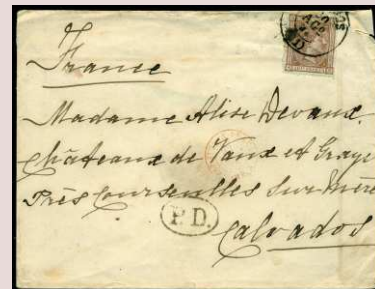 France
Madame Alise Devaux
Châteaux de Vaux et Graye
Près Courseulles Sur Mère
P.D.
Calvados